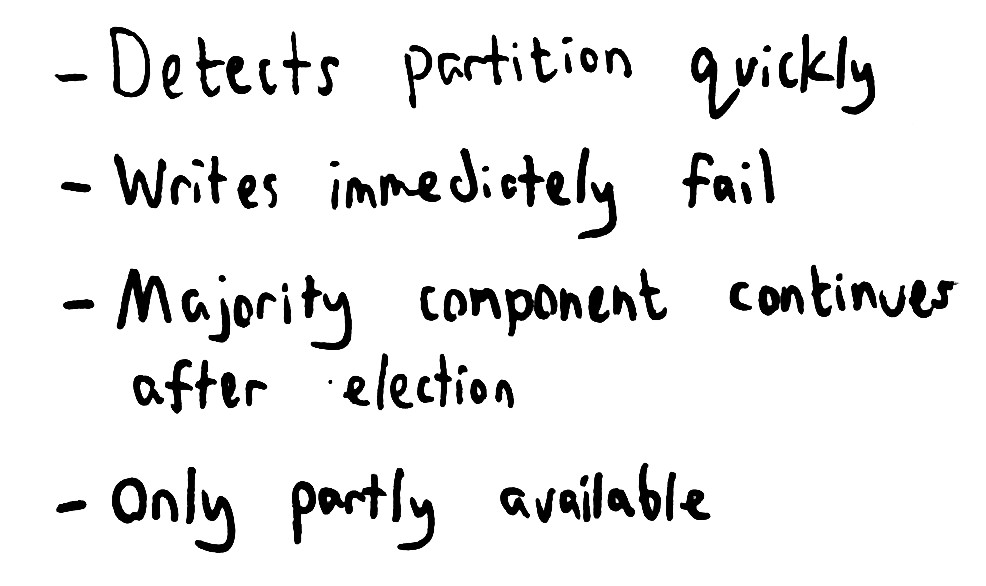 - Detects partition quickly
- Writes immedictely fail
- Majority component continues
after election
- Only partly available